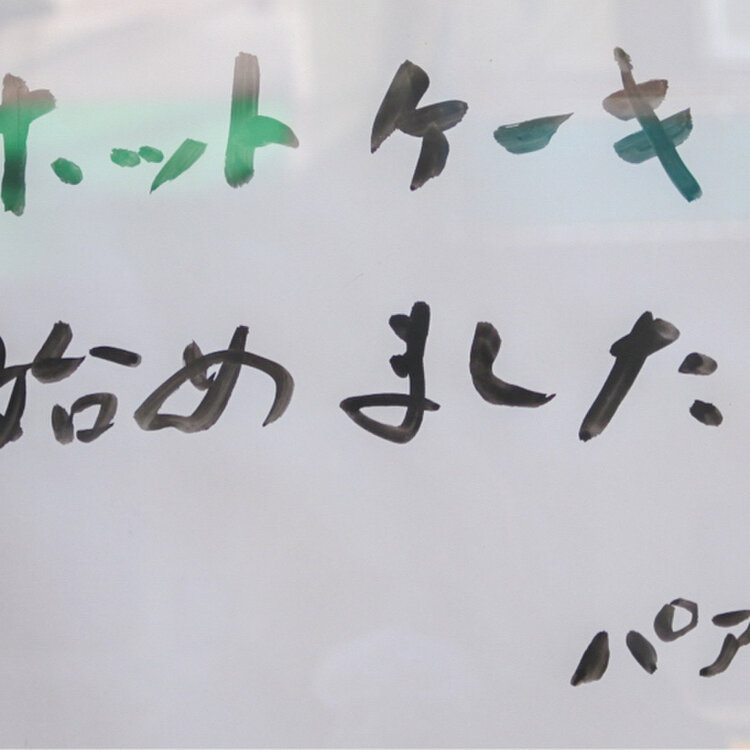 ホットケーキ
始めました
パア